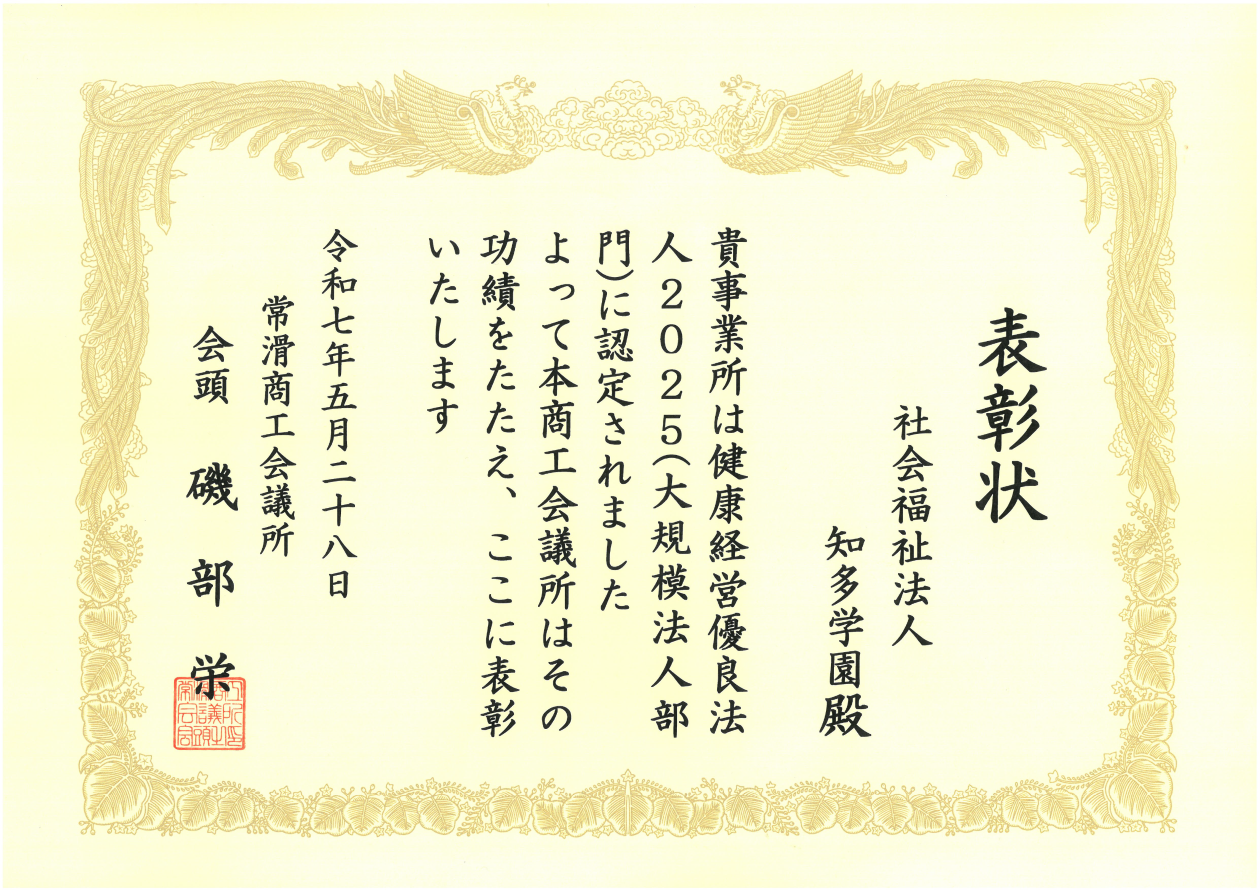 表彰状
社会福祉法人
知多学園殿
貴事業所は健康経営優良法
人2025(大規模法人部
門)に認定されました
よって本商工会議所はその
功績をたたえ、ここに表彰
いたします
令和七年五月二十八日
常滑商工会議所
会頭 磯部栄